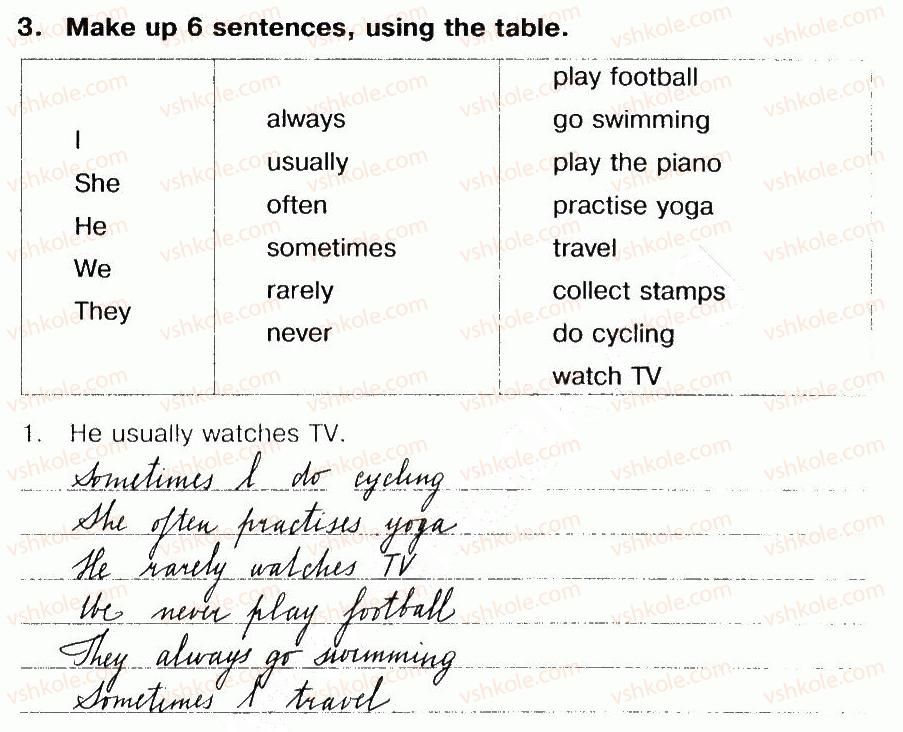 3. Make up 6 sentences, using the table.
I
She
He
We
They
always
usually
often
sometimes
rarely
never
play football
go swimming
play the piano
practise yoga
travel
collect stamps
do cycling
watch TV
1. He usually watches TV.
Sometimes I do cycling
She often practises yoga
He rarely watches TV
We never play football
They always go swimming
Sometimes I travel
vshkole.com